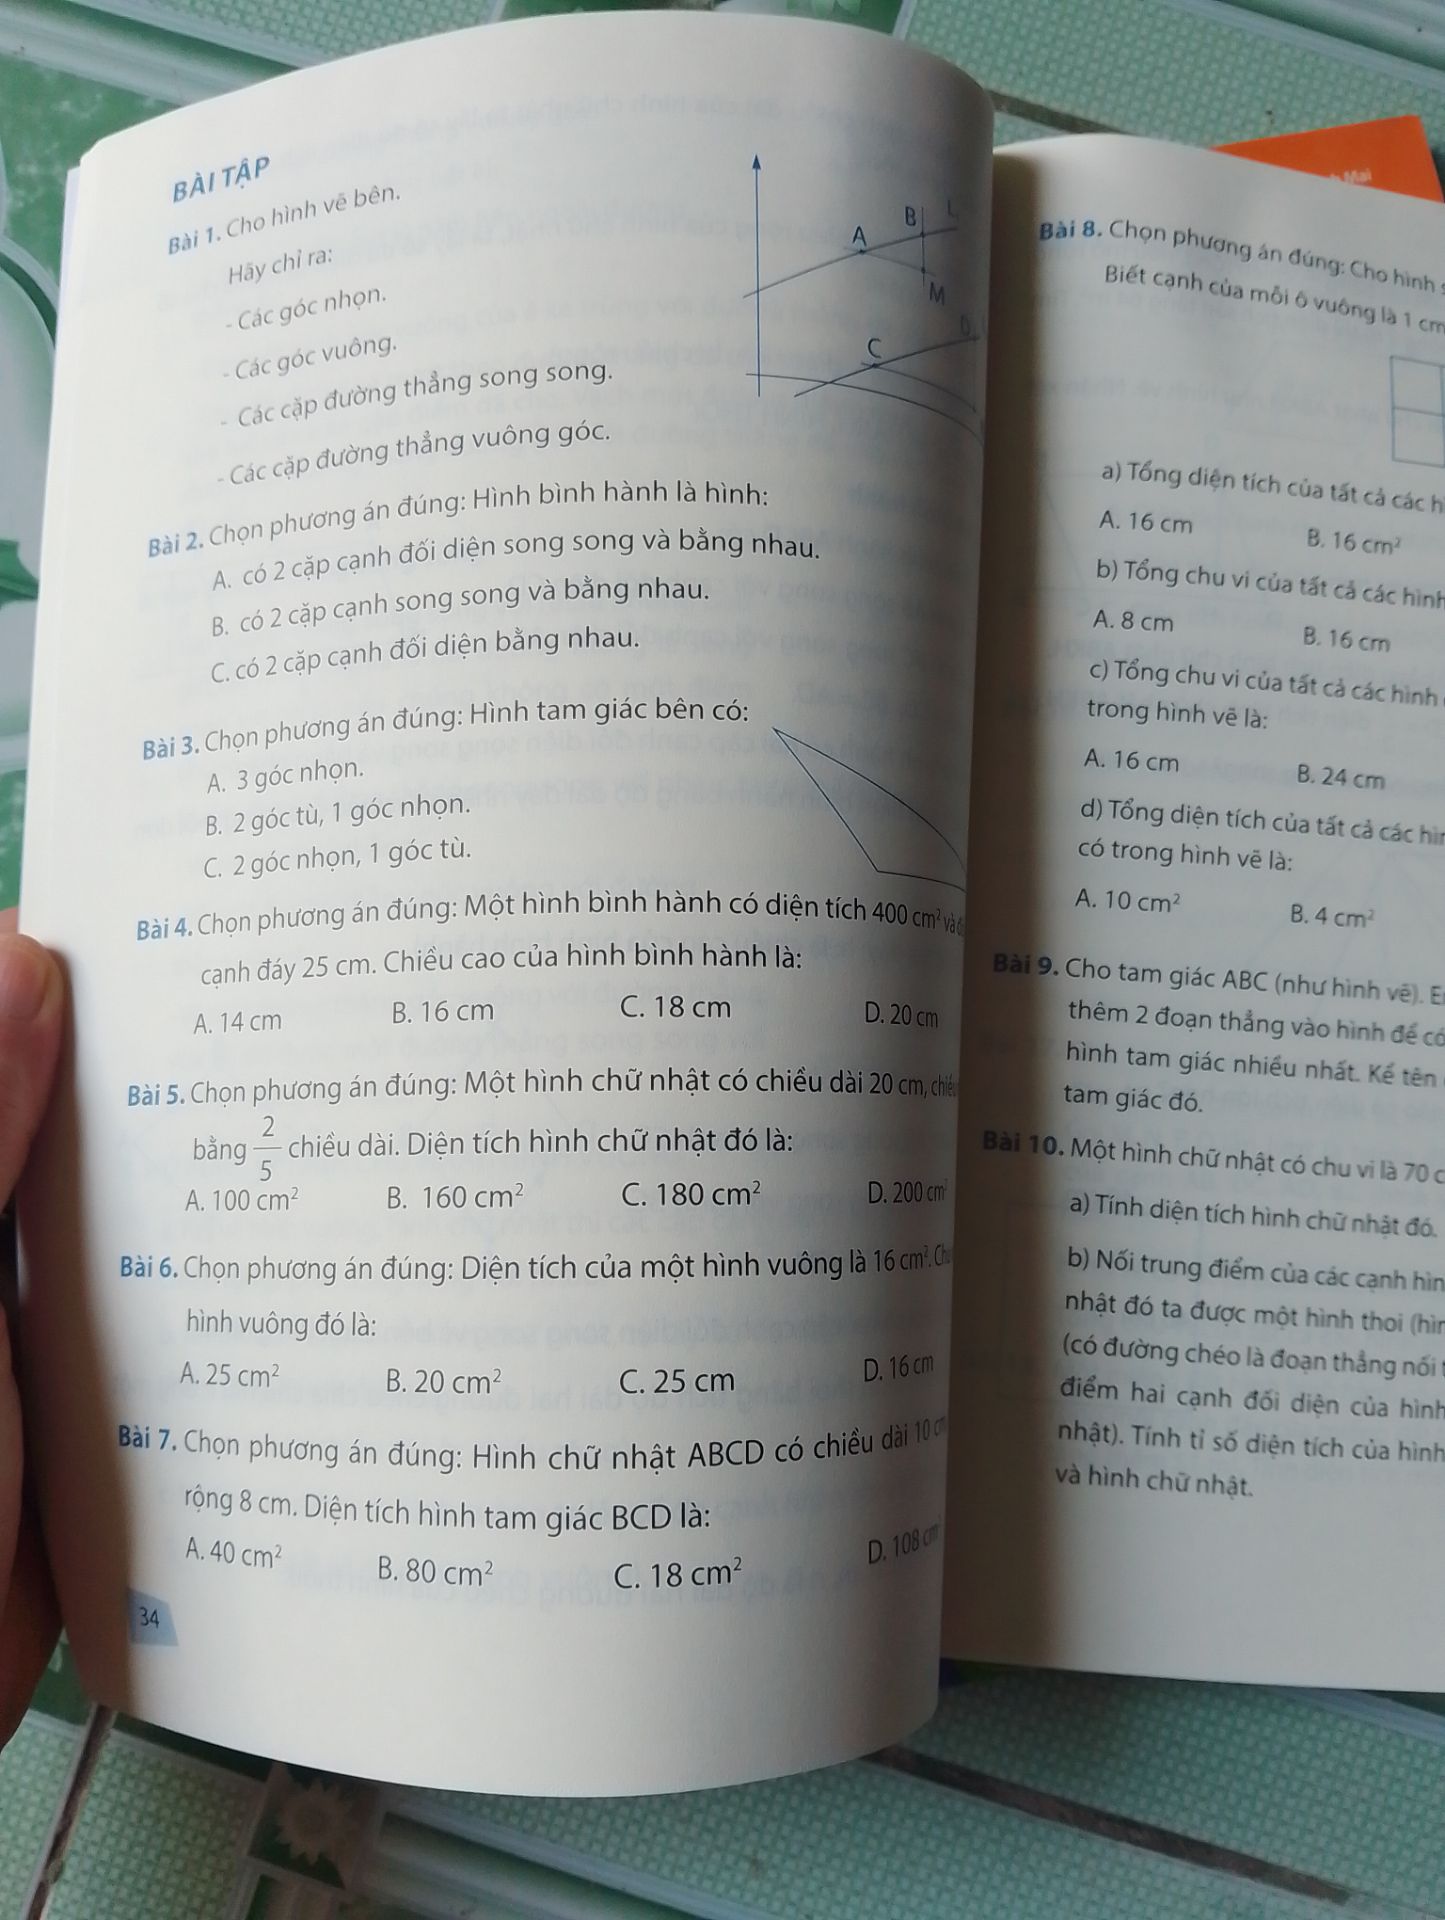 BÀI TẬP
Bài 1. Cho hình vẽ bên.
Hãy chỉ ra:
- Các góc nhọn.
- Các góc vuông.
- Các cặp đường thẳng song song.
- Các cặp đường thẳng vuông góc.
A
B
L
M
C
D
Bài 2. Chọn phương án đúng: Hình bình hành là hình:
A. có 2 cặp cạnh đối diện song song và bằng nhau.
B. có 2 cặp cạnh song song và bằng nhau.
C. có 2 cặp cạnh đối diện bằng nhau.
Bài 3. Chọn phương án đúng: Hình tam giác bên có:
A. 3 góc nhọn.
B. 2 góc tù, 1 góc nhọn.
C. 2 góc nhọn, 1 góc tù.
Bài 4. Chọn phương án đúng: Một hình bình hành có diện tích 400 cm² và
cạnh đáy 25 cm. Chiều cao của hình bình hành là:
A. 14 cm B. 16 cm C. 18 cm D. 20 cm
Bài 5. Chọn phương án đúng: Một hình chữ nhật có chiều dài 20 cm,
bằng 2/5 chiều dài. Diện tích hình chữ nhật đó là:
A. 100 cm² B. 160 cm² C. 180 cm² D. 200 cm²
Bài 6. Chọn phương án đúng: Diện tích của một hình vuông là 16 cm².
hình vuông đó là:
A. 25 cm² B. 20 cm² C. 25 cm D. 16 cm
Bài 7. Chọn phương án đúng: Hình chữ nhật ABCD có chiều dài 10
rộng 8 cm. Diện tích hình tam giác BCD là:
A. 40 cm² B. 80 cm² C. 18 cm² D. 108 cm²
34
Mai
Bài 8. Chọn phương án đúng: Cho hình
Biết cạnh của mỗi ô vuông là 1 cm
a) Tổng diện tích của tất cả các
A. 16 cm B. 16 cm²
b) Tổng chu vi của tất cả các hình
A. 8 cm B. 16 cm
c) Tổng chu vi của tất cả các hình
trong hình vẽ là:
A. 16 cm B. 24 cm
d) Tổng diện tích của tất cả các
có trong hình vẽ là:
A. 10 cm² B. 4 cm²
Bài 9. Cho tam giác ABC (như hình vẽ).
thêm 2 đoạn thẳng vào hình để
hình tam giác nhiều nhất. Kể tên
tam giác đó.
Bài 10. Một hình chữ nhật có chu vi là 70
a) Tính diện tích hình chữ nhật đó.
b) Nối trung điểm của các cạnh
nhật đó ta được một hình thoi
(có đường chéo là đoạn thẳng nối
điểm hai cạnh đối diện của hình
nhật). Tính tỉ số diện tích của hình
và hình chữ nhật.